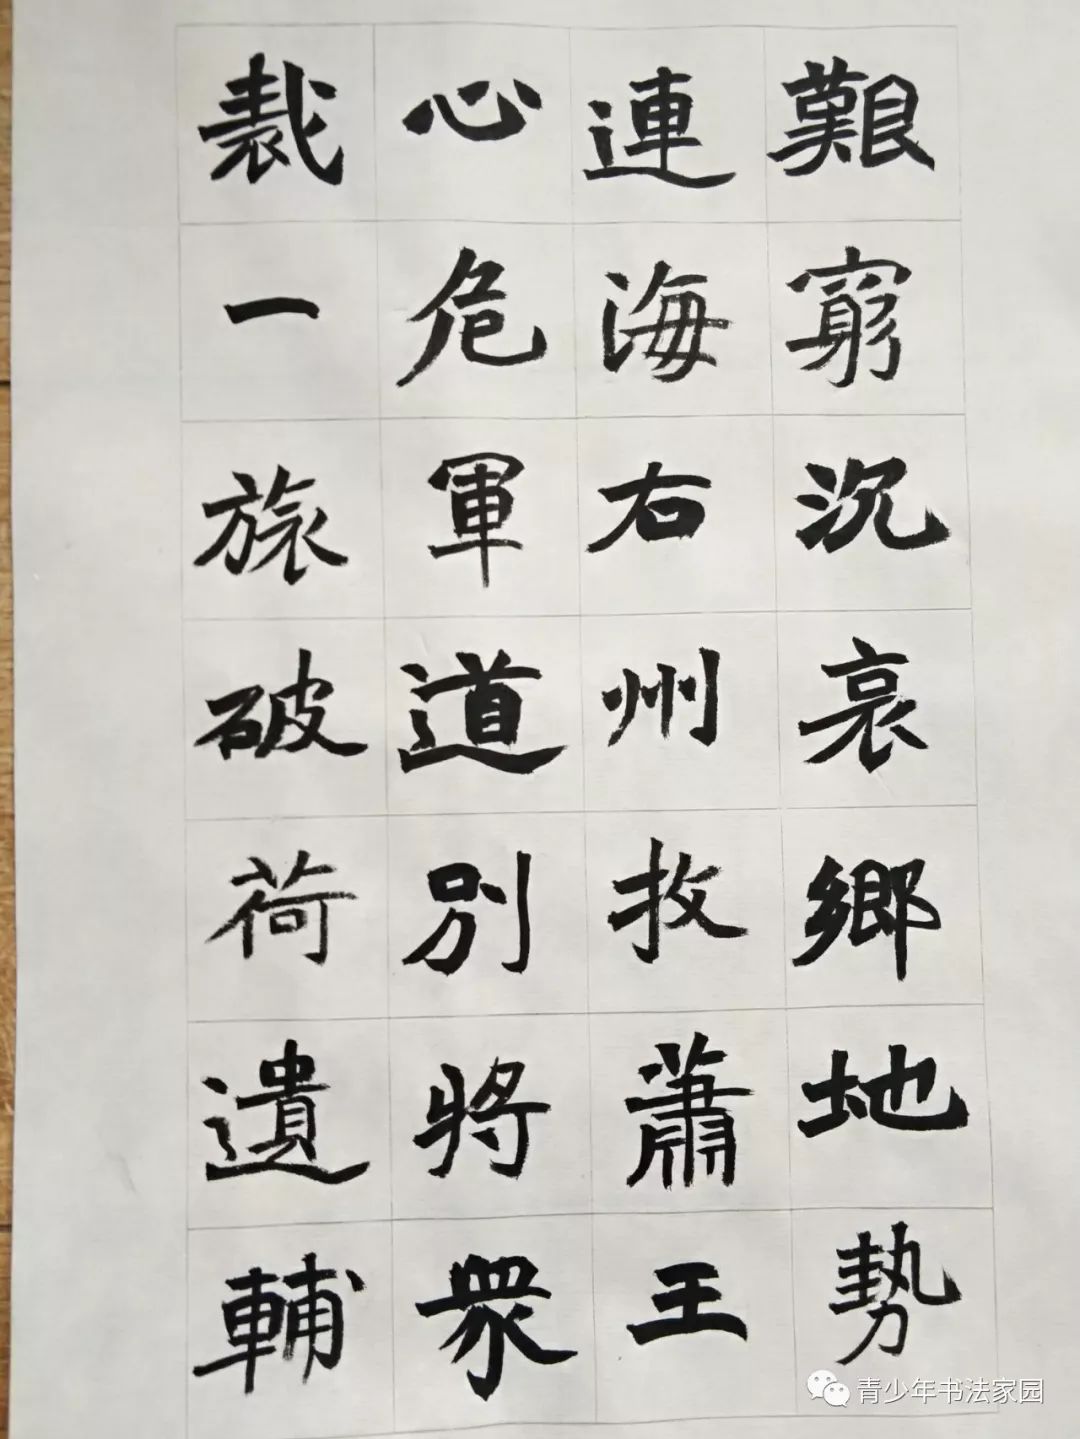 艱窮沉哀鄉地勢
連海右州牧蕭王
心危軍道別將衆
裁一旅破荷遺輔
青少年书法家园